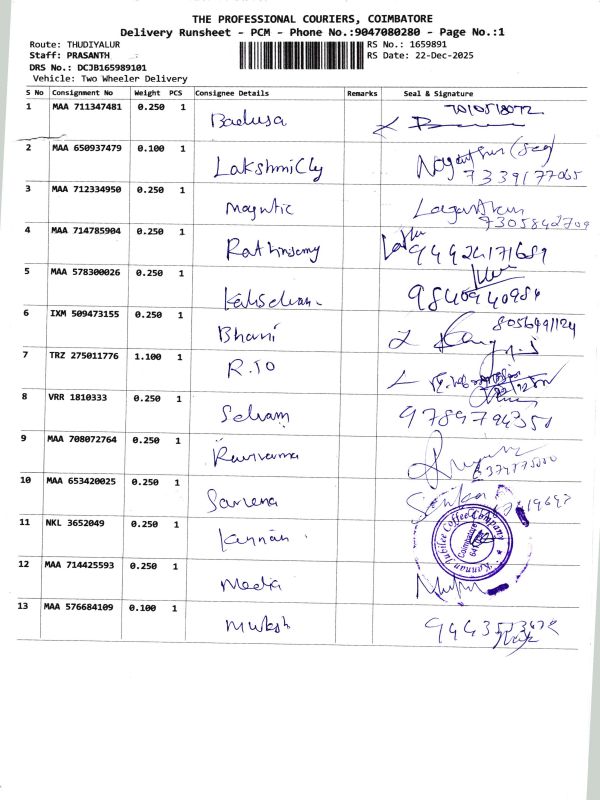 THE PROFESSIONAL COURIERS, COIMBATORE
Delivery Runsheet - PCM - Phone No.:9047080280 - Page No.:1
Route: THUDIYALUR RS No.: 1659891
Staff: PRASANTH RS Date: 22-Dec-2025
DRS No.: DCJB165989101
Vehicle: Two Wheeler Delivery
S No Consignment No Weight PCS Consignee Details Remarks Seal & Signature
1 MAA 711347481 0.250 1 Badusa
2 MAA 650937479 0.100 1 Lakshmi Cly 7339177065
3 MAA 712334950 0.250 1 Magntic 7305842709
4 MAA 714785904 0.250 1 94424171689
5 MAA 578300026 0.250 1 9840940984
6 IXM 509473155 0.250 1 Bhani
7 TRZ 275011776 1.100 1 R.TO
8 VRR 1810333 0.250 1 Selvam
9 MAA 708072764 0.250 1
10 MAA 653420025 0.250 1 Sareena
11 NKL 3652049 0.250 1 Kannan Kannan Jubilee Coffee Company Coimbatore
12 MAA 714425593 0.250 1 Media
13 MAA 576684109 0.100 1 Muksh